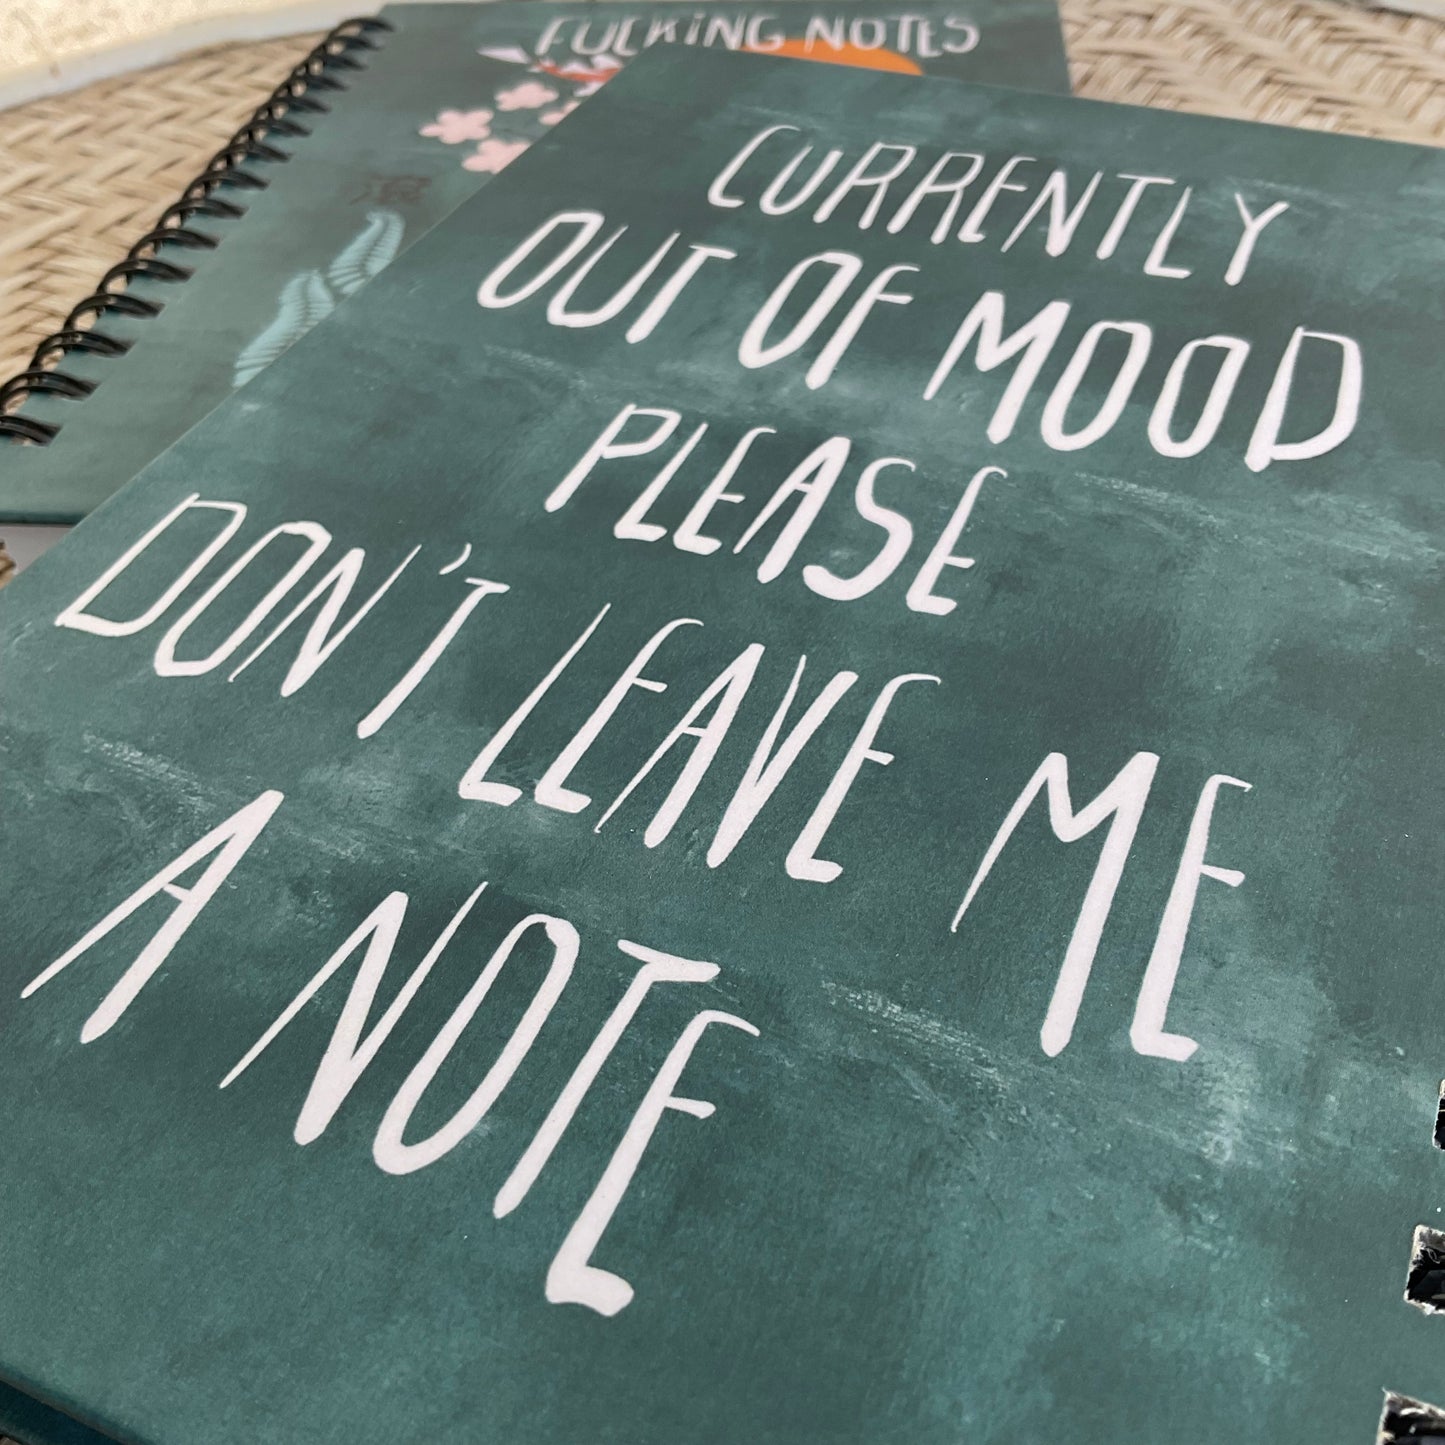 FUCKING NOTES
CURRENTLY
OUT OF MOOD
PLEASE
DON'T LEAVE ME
A NOTE